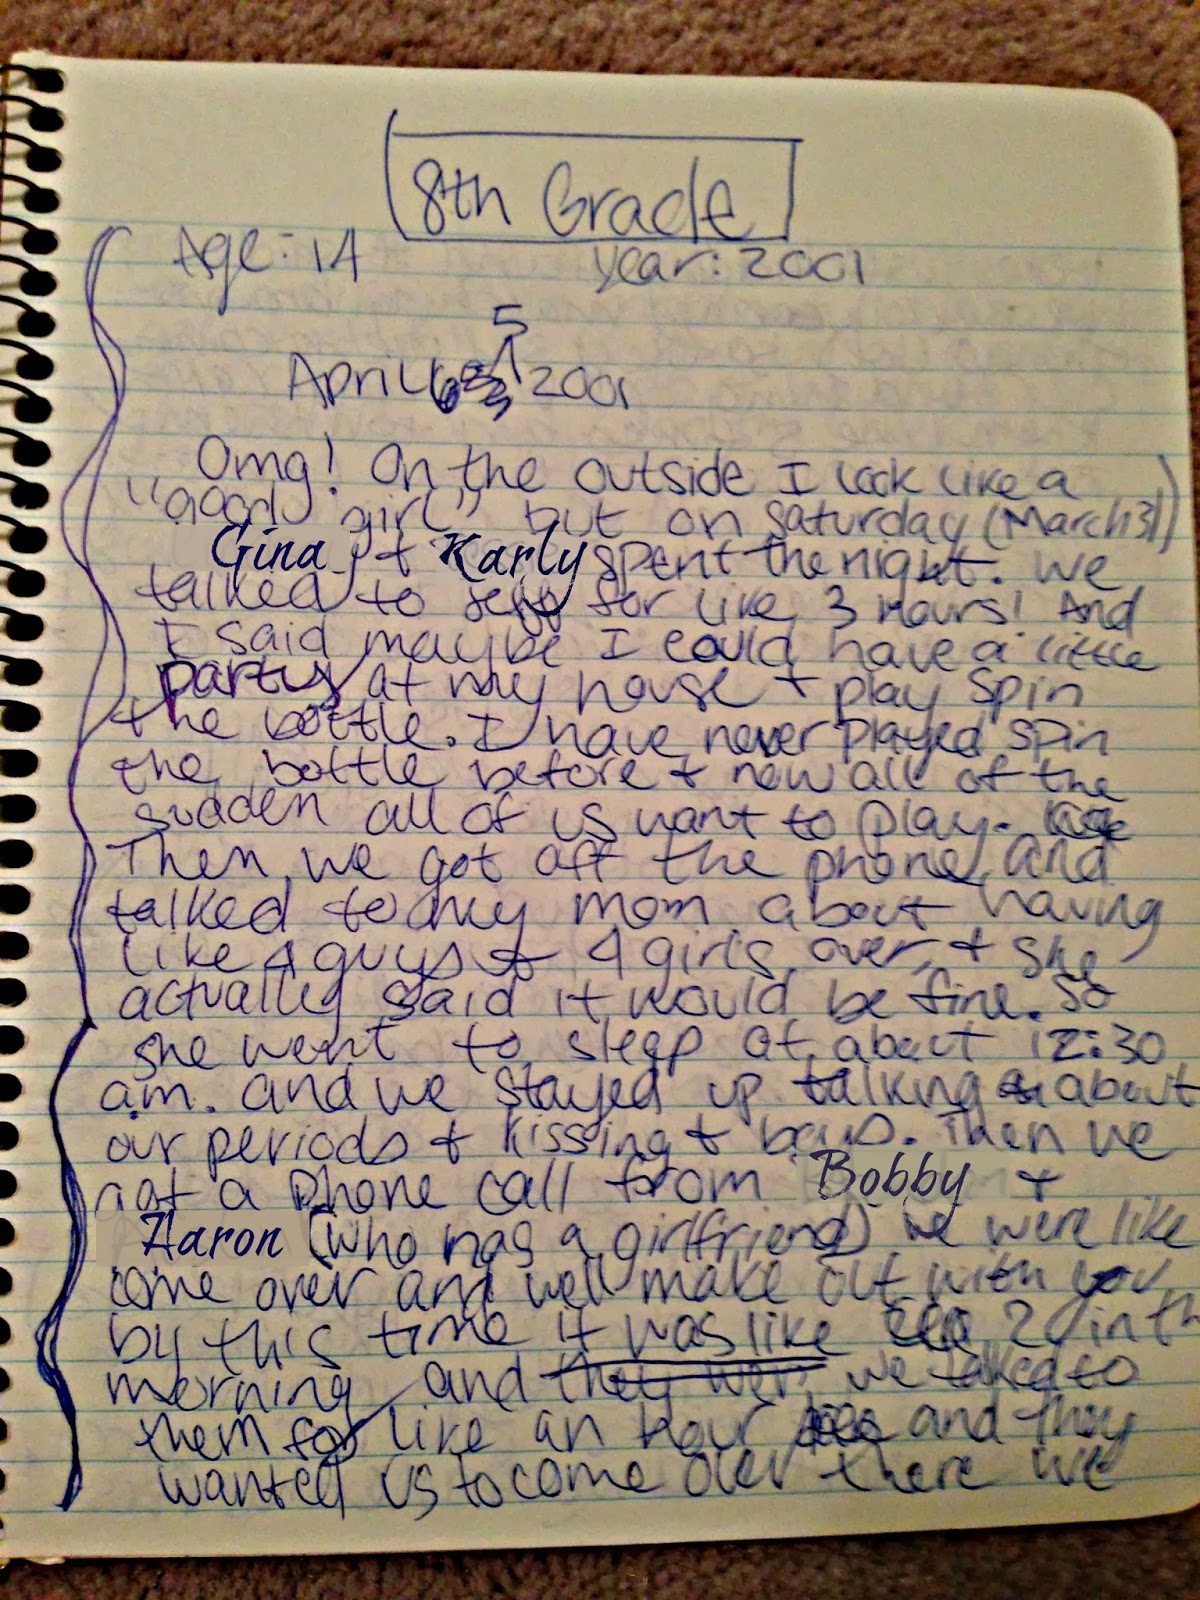 8th Grade
Age: 14 year: 2001
5
April 2001
Omg! On the outside I look like a
"good girl" but on saturday (March 31)
Gina + Karly spent the night. We
talked to Jeff for like 3 hours! And
I said maybe I could have a little
party at my house + play spin
the bottle. I have never played spin
the bottle before + now all of the
sudden all of us want to play.
Then we got off the phone and
talked to my mom about having
like 4 guys + 4 girls over, + she
actually said it would be fine. So
she went to sleep at about 12:30
a.m. and we stayed up talking about
our periods + kissing + boys. Then we
got a phone call from Bobby +
Aaron (who has a girlfriend) we were like
come over and we'll make out with you
by this time it was like 2 in th
morning and they were we talked to
them for like an hour and they
wanted us to come over there we